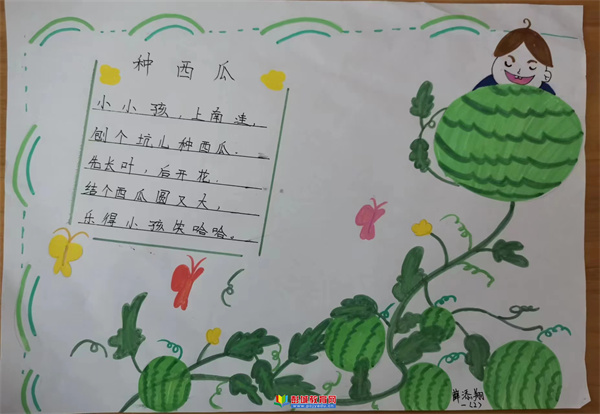 种西瓜
小小孩，上南洼，
刨个坑儿种西瓜．
先长叶，后开花．
结个西瓜圆又大，
乐得小孩笑哈哈。
薛添翔
一(2)